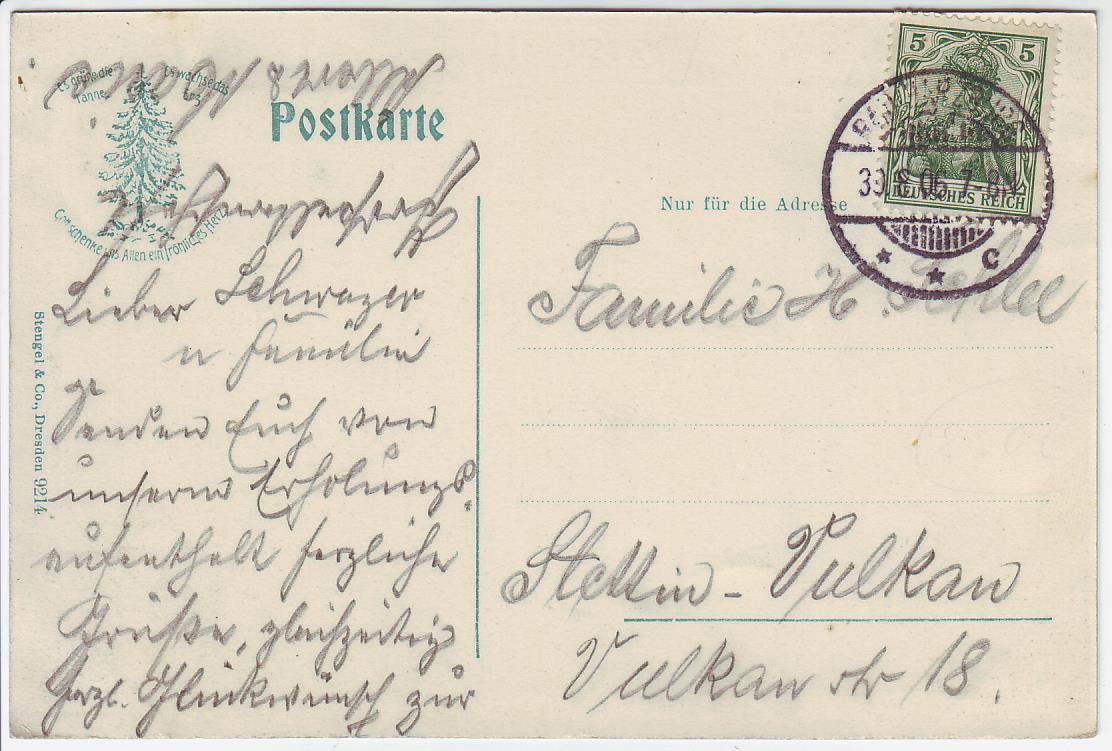 Es grüne die Tanne
Es wachse das Erz
Gott schenke uns Allen ein fröhliches Herz!
Postkarte
Nur für die Adresse
5 5
DEUTSCHES REICH
39.8.05. 7-8N.
* * c
Stengel & Co., Dresden 9214
Lieber Schwager
u Familie
Senden Euch von
unserm Erholungs-
aufenthalt herzliche
Grüße, gleichzeitig
herzl. Glückwünsch zur
Familie H.
Stettin - Vulkan
Vulkanstr 18.